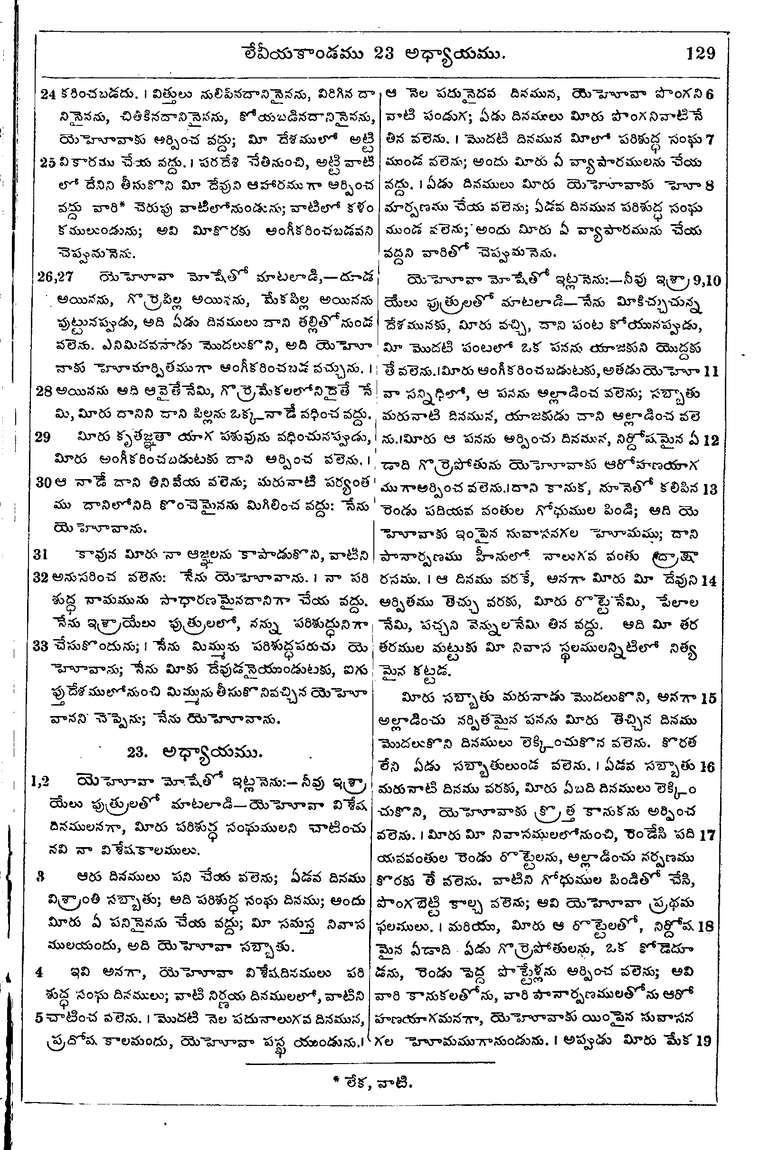 లేవీయకాండము 23 అధ్యాయము. 129
24 కరించబడదు. । విత్తులు నులిపినదానినైనను, విరిగిన దా
నినైనను, చితికినదానినైనను, కోయబడినదానినైనను,
యెహోవాకు అర్పించ వద్దు; మీ దేశములో అట్టి
25 వికారము చేయ వద్దు. । పరదేశి చేతినుంచి, అట్టి వాటి
లో దేనిని తీసుకొని మీ దేవుని ఆహారముగా అర్పించ
వద్దు వారి* చెరుపు వాటిలోనుండును; వాటిలో కళం
కములుండును; అవి మీకొరకు అంగీకరించబడవని
చెప్పుమనెను.
26,27 యెహోవా మోషేతో మాటలాడి,—దూడ
అయినను, గొర్రెపిల్ల అయినను, మేకపిల్ల అయినను
పుట్టునప్పుడు, అది ఏడు దినములు దాని తల్లితోనుండ
వలెను. ఎనిమిదవనాడు మొదలుకొని, అది యెహో
వాకు హెూమార్పితముగా అంగీకరించబడ వచ్చును. ।
28 అయినను అది ఆవైతేనేమి, గొర్రెమేకలలోనిదైతే నే
మి, మీరు దానిని దాని పిల్లను ఒక్కనాడే వధించ వద్దు.
29 మీరు కృతజ్ఞతా యాగ పశువును వధించునప్పుడు,
మీరు అంగీకరించబడుటకు దాని అర్పించ వలెను. ।
30 ఆ నాడే దాని తినివేయ వలెను; మరునాటి పర్యంత
ము దానిలోనిది కొంచెమైనను మిగిలించ వద్దు: నేను
యెహోవాను.
31 కావున మీరు నా ఆజ్ఞలను కాపాడుకొని, వాటిని
32 అనుసరించ వలెను: నేను యెహోవాను. । నా పరి
శుద్ధ నామమును సాధారణమైనదానిగా చేయ వద్దు.
నేను ఇశ్రాయేలు పుత్రులలో, నన్ను పరిశుద్ధునిగా
33 చేసుకొందును; । నేను మిమ్మును పరిశుద్ధపరుచు యె
హోవాను; నేను మీకు దేవుడనైయుండుటకు, ఐగు
ప్తుదేశములోనుంచి మిమ్మును తీసుకొనివచ్చిన యెహో
వానని చెప్పెను; నేను యెహోవాను.
23. అధ్యాయము.
1,2 యెహోవా మోషేతో ఇట్లనెను:—నీవు ఇశ్రా
యేలు పుత్రులతో మాటలాడి—యెహోవా విశేష
దినములనగా, మీరు పరిశుద్ధ సంఘములని చాటించు
నవి నా విశేషకాలములు.
3 ఆరు దినములు పని చేయ వలెను; ఏడవ దినము
విశ్రాంతి సబ్బాతు; అది పరిశుద్ధ సంఘ దినము; అందు
మీరు ఏ పనినైనను చేయ వద్దు; మీ సమస్త నివాస
ములయందు, అది యెహోవా సబ్బాతు.
4 ఇవి అనగా, యెహోవా విశేషదినములు పరి
శుద్ధ సంఘ దినములు; వాటి నిర్ణయ దినములలో, వాటిని
5 చాటించ వలెను. । మొదటి నెల పదునాలుగవ దినమున,
ప్రదోష కాలమందు, యెహోవా పస్ఖ యుండును. ।
ఆ నెల పదునైదవ దినమున, యెహోవా పొంగని 6
వాటి పండుగ; ఏడు దినములు మీరు పొంగనివాటినే
తిన వలెను. । మొదటి దినమున మీలో పరిశుద్ధ సంఘ 7
ముండ వలెను; అందు మీరు ఏ వ్యాపారములను చేయ
వద్దు. । ఏడు దినములు మీరు యెహోవాకు హో 8
మార్పణము చేయ వలెను; ఏడవ దినమున పరిశుద్ధ సంఘ
ముండ వలెను; అందు మీరు ఏ వ్యాపారమును చేయ
వద్దని వారితో చెప్పుమనెను.
యెహోవా మోషేతో ఇట్లనెను:—నీవు ఇశ్రా 9,10
యేలు పుత్రులతో మాటలాడి—నేను మీకిచ్చుచున్న
దేశమునకు, మీరు వచ్చి, దాని పంట కోయునప్పుడు,
మీ మొదటి పంటలో ఒక పనను యాజకుని యొద్దకు
తే వలెను. । మీరు అంగీకరించబడుటకు, అతడు యెహో 11
వా సన్నిధిలో, ఆ పనను అల్లాడించ వలెను; సబ్బాతు
మరునాటి దినమున, యాజకుడు దాని అల్లాడించ వలె
ను. । మీరు ఆ పనను అర్పించు దినమున, నిర్దోషమైన ఏ 12
డాది గొర్రెపోతును యెహోవాకు ఆరోహణయాగ
ముగా అర్పించ వలెను. । దాని కానుక, నూనెతో కలిపిన 13
రెండు పదియవ వంతుల గోధుముల పిండి; అది యె
హోవాకు ఇంపైన సువాసనగల హోమము; దాని
పానార్పణము హీనులో నాలుగవ వంతు ద్రాక్షా
రసము. । ఆ దినము వరకే, అనగా మీరు మీ దేవుని 14
అర్పితము తెచ్చు వరకు, మీరు రొట్టెనేమి, పేలాల
నేమి, పచ్చని వెన్నులనేమి తిన వద్దు. అది మీ తర
తరముల మట్టుకు మీ నివాస స్థలములన్నిటిలో నిత్య
మైన కట్టడ.
మీరు సబ్బాతు మరునాడు మొదలుకొని, అనగా 15
అల్లాడించు నర్పితమైన పనను మీరు తెచ్చిన దినము
మొదలుకొని దినములు లెక్కించుకొన వలెను. కొరత
లేని ఏడు సబ్బాతులుండ వలెను. । ఏడవ సబ్బాతు 16
మరునాటి దినము వరకు, మీరు ఏబది దినములు లెక్కిం
చుకొని, యెహోవాకు క్రొత్త కానుకను అర్పించ
వలెను. । మీరు మీ నివాసములలోనుంచి, రెండేసి పది 17
యవవంతుల రెండు రొట్టెలను, అల్లాడించు నర్పణము
కొరకు తే వలెను. వాటిని గోధుముల పిండితో చేసి,
పొంగబెట్టి కాల్చ వలెను; అవి యెహోవా ప్రథమ
ఫలములు. । మరియు, మీరు ఆ రొట్టెలతో, నిర్దోష 18
మైన ఏడాది ఏడు గొర్రెపోతులను, ఒక కోడెదూ
డను, రెండు పెద్ద పొట్టేళ్లను అర్పించ వలెను; అవి
వారి కానుకలతోను, వారి పానార్పణములతోను ఆరో
హణయాగమనగా, యెహోవాకు యింపైన సువాసన
గల హోమముగానుండును. । అప్పుడు మీరు మేక 19
* లేక, వాటి.